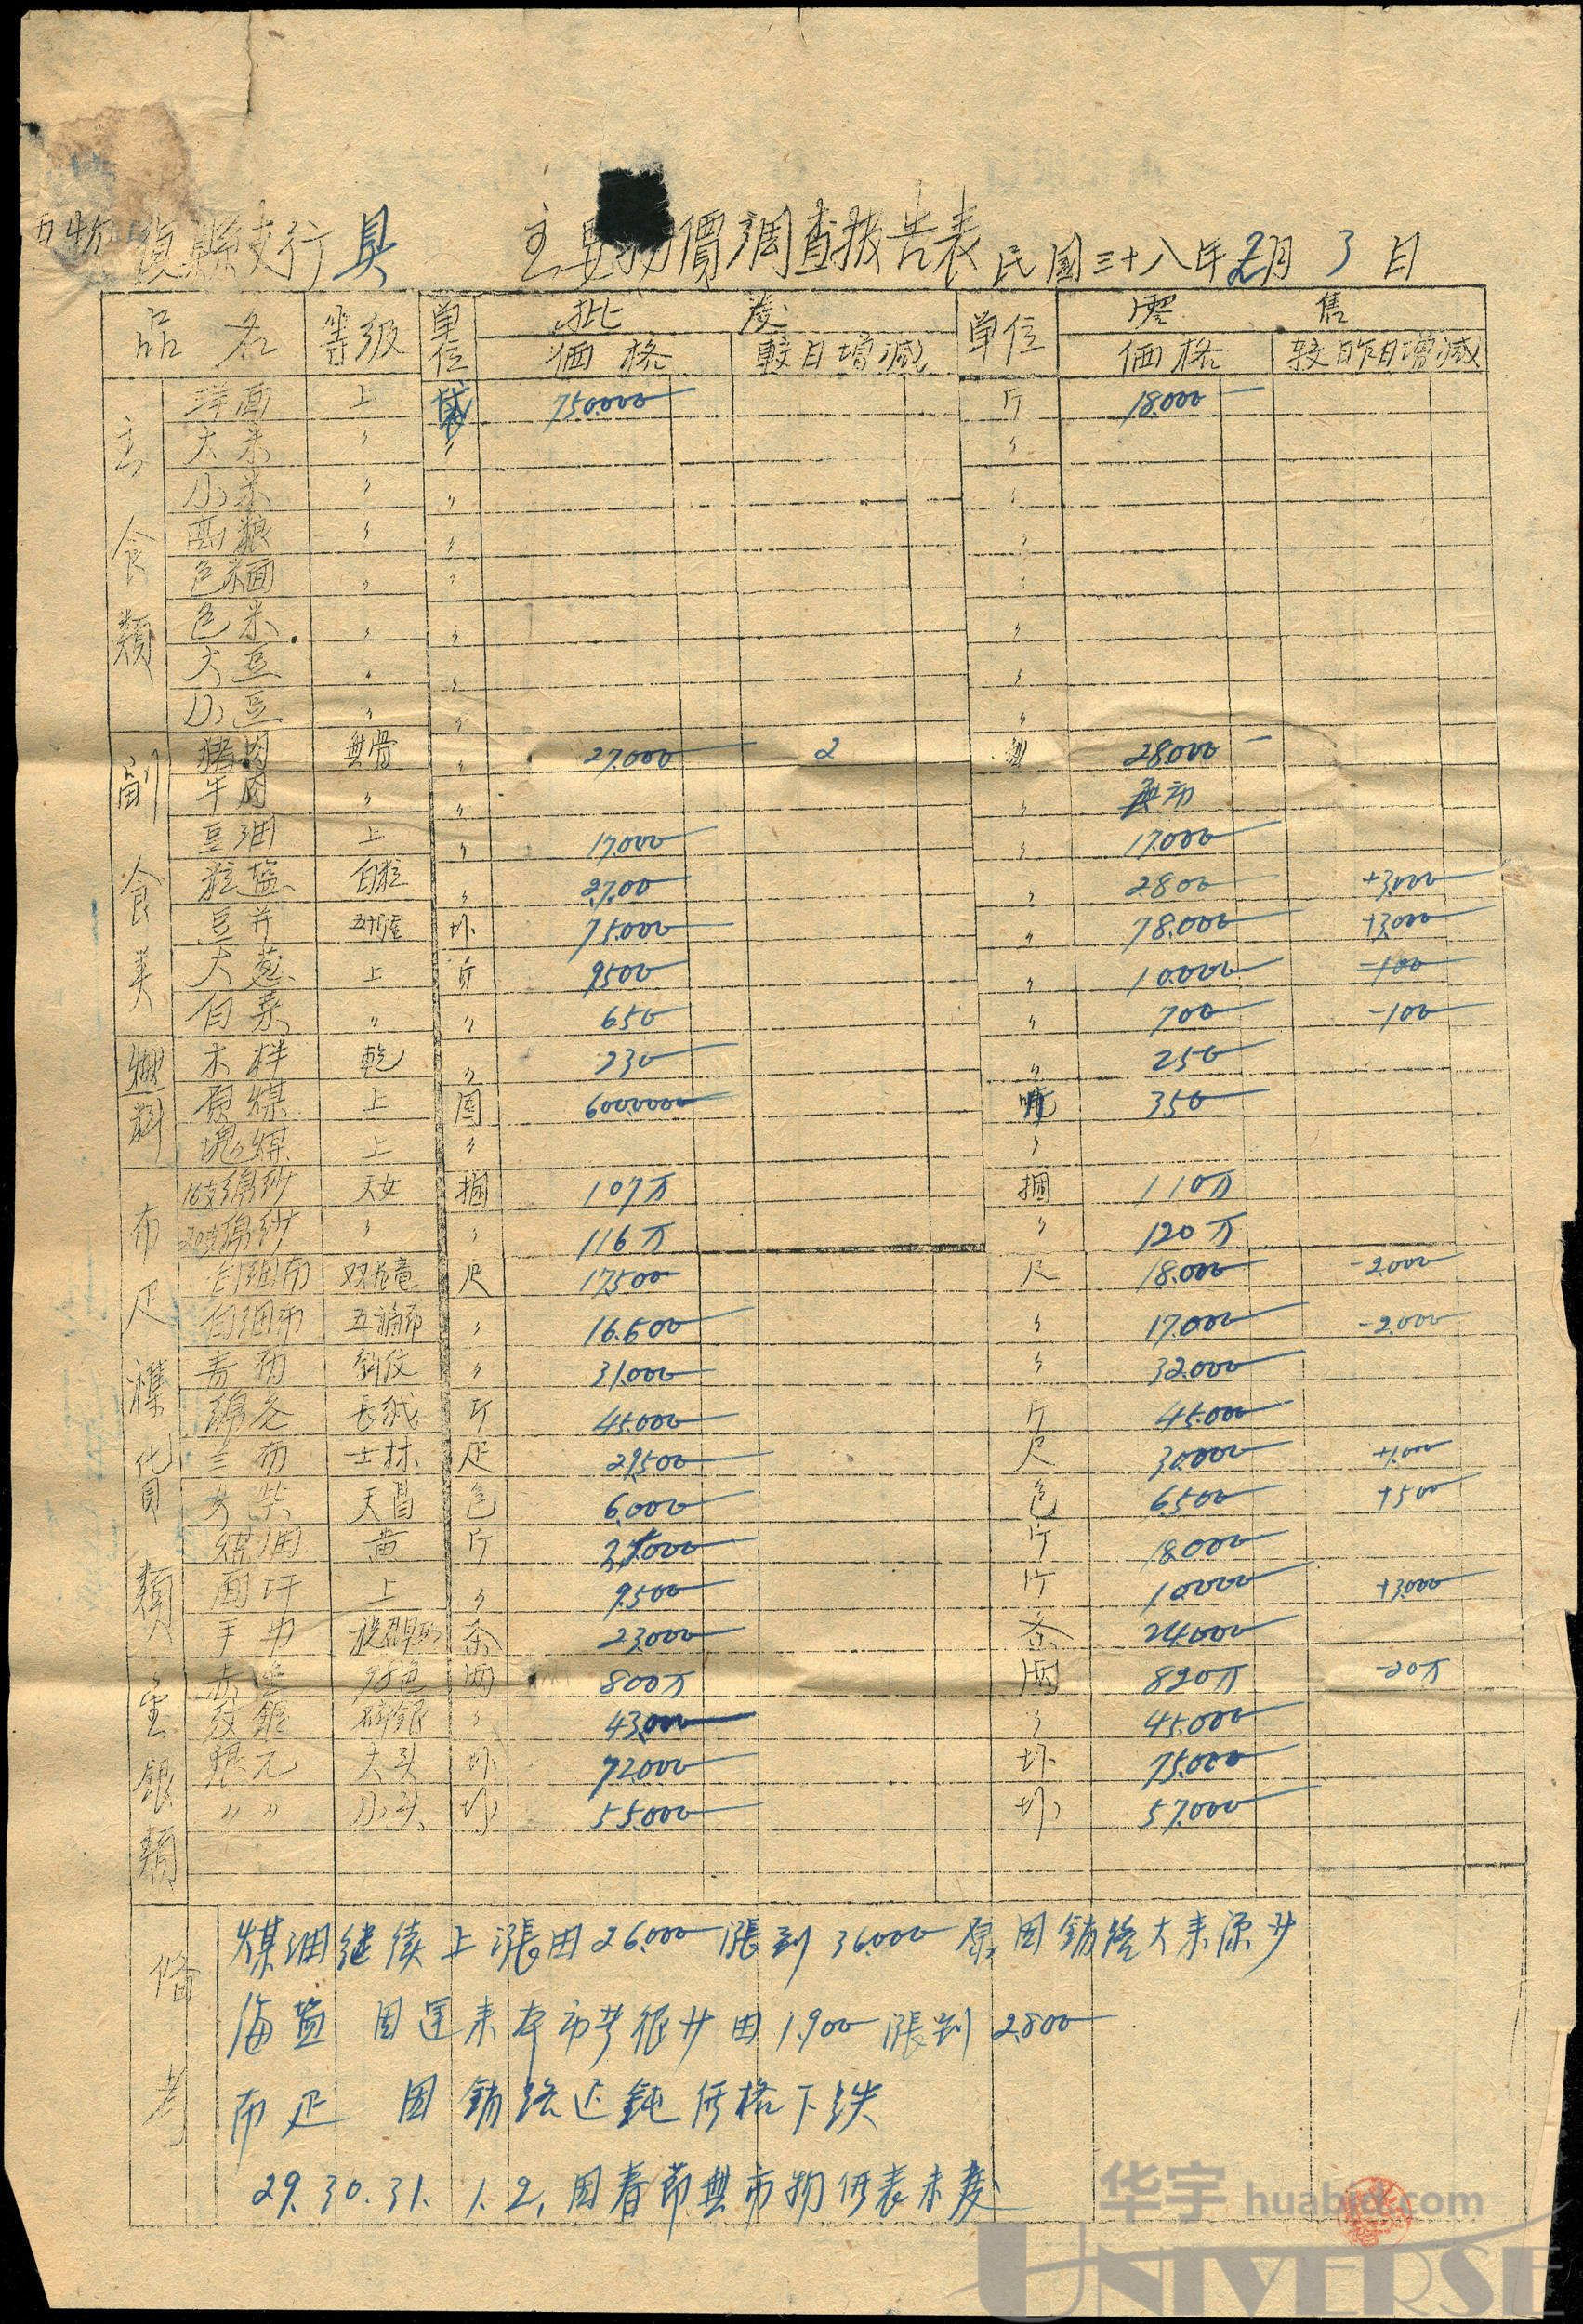 復縣支行 具 主要物價調查报告表 民國三十八年2月3日
品名 等級 单位 批發 单位 零售
価格 較日增減 価格 較昨日增減
主食類
洋面 上 袋 750000 斤 18.000
大米 〃 〃 〃
小米 〃 〃 〃
〃 〃 〃
色麺 〃 〃 〃
色米 〃 〃 〃
大豆 〃 〃 〃
小豆 〃 〃 〃
副食类
猪肉 無骨 〃 27.000 2 28.000
牛肉 〃 〃 〃 無市
豆油 上 〃 17.000 〃 17.000
粒盐 白粒 〃 2.700 〃 2800 +3.000
豆并 坏 75.000 〃 78.000 +3.000
大葱 上 斤 9500 〃 10.000 -100
白菜 〃 〃 650 〃 700 -100
燃料
木样 乾 〃 230 〃 250
原煤 上 6000000 350
塊煤 上 〃 〃
布疋襍貨類
16支綿紗 天女 捆 107万 捆 110万
20支綿紗 〃 〃 116万 〃 120万
白细布 双龍 尺 17500 尺 18.000 -2.000
白细布 五福布 〃 16.500 〃 17.000 -2.000
青布 斜仗 〃 31.000 〃 32.000
綿花 長絨 斤 45.000 斤 45.000
兰布 士林 疋 29.500 尺 30.000 +1.000
火柴 天昌 包 6.000 包 6500 +500
煤油 黄 斤 斤 18.000
面 上 〃 9.500 斤 10.000 +3.000
手巾 条 23.000 条 24.000
金銀類
赤金 色 两 800万 两 820万 -20万
纹銀 碎銀 〃 43.000 〃 45.000
銀元 大头 坏 72.000 坏 75.000
〃 〃 小头 坏 55.000 坏 57.000
俻考
煤油继续上漲由26.000漲到36.000原因銷路大来源少
海盐 因運来本市者很少由1.900漲到2.800
布疋 因銷路迟鈍価格下跌
29.30.31. 1.2.因春節無市物価表未發
华宇 huabid.com
UNIVERSE